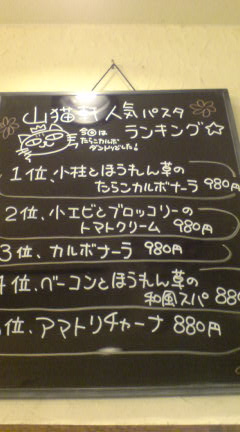 山猫軒人気パスタ
ランキング☆
今回は
たらこカルボ
ダントツでした!
1位、小柱とほうれん草の
たらこカルボナーラ 980円
2位、小エビとブロッコリーの
トマトクリーム 980円
3位、カルボナーラ 980円
位、ベーコンとほうれん草の
和風スパ 880
位、アマトリチャーナ 880円